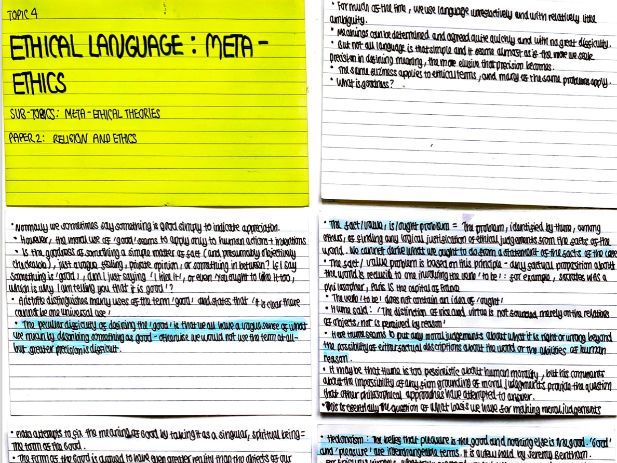 TOPIC 4
ETHICAL LANGUAGE: META-
ETHICS
SUB-TOPICS: META-ETHICAL THEORIES
PAPER 2: RELIGION AND ETHICS
• For much of the time, we use language unreflectively and with relatively little
ambiguity.
• Meanings can be determined and agreed quite quickly and with no great difficulty.
• But not all language is that simple and it seems almost as if the more we seek
precision in defining meaning, the more elusive that precision becomes.
• The same applies to ethical terms, and many of the same problems apply.
• What is goodness?
• Normally we sometimes say something is good simply to indicate appreciation.
• However, the moral use of 'good' seems to apply only to human actions + intentions.
• Is the goodness of something a simple matter of fact (and presumably objectively
checkable), just vague feeling, private opinion, or something in between? If I say
something is 'good', am I just saying 'I like it', or even 'You ought to like it too',
which is why I am telling you that it is good'?
• Aristotle distinguishes many uses of the term 'good' and states that 'it is clear there
cannot be one universal use'.
• The peculiar difficulty of defining the 'good' is that we all have a vague sense of what
we mean by describing something as good - otherwise we would not use the term at all -
but greater precision is difficult.
• The fact/value, is/ought problem = The problem, identified by Hume, among
others, of finding any logical justification of ethical judgements from the facts of the
world. We cannot derive what we ought to do from a statement of the facts of the case
• The fact/value problem is based on this principle - any factual proposition about
the world is reducible to one involving the verb 'to be': For example, Socrates was a
philosopher, Paris is the capital of France.
• The verb 'to be' does not contain an idea of 'ought'.
• Hume said: 'The distinction of vice and virtue is not founded merely on the relations
of objects, nor is perceived by reason'
• Here Hume seems to put any moral judgements about what it is right or wrong beyond
the possibility of either factual descriptions about the world or the abilities of human
reason.
• It may be that Hume is too pessimistic about human morality, but his comments
about the impossibility of any firm grounding of moral judgements provide the question
that other philosophical approaches have attempted to answer.
• This is essentially the question of what basis we have for making moral judgements
• Plato attempts to fix the meaning of Good by taking it as a singular, spiritual being =
the Form of the Good.
• The Form of the Good is alleged to have even greater reality than the objects of our
• Hedonism: The belief that pleasure is the good and nothing else is the good. 'Good'
and 'pleasure' are interchangeable terms. It is a view held by Jeremy Bentham.